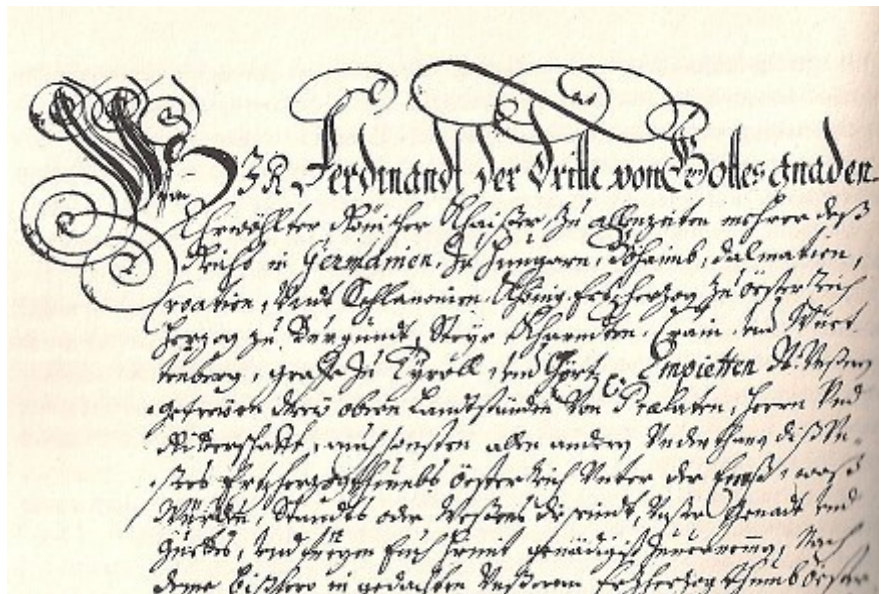 WIR Ferdinandt der Dritte von Gottes gnaden
Erwöhlter Römischer Khaiser, zu allenzeiten mehrer deß
Reichs in Germanien, Zu Hungarn, Böhaimb, Dalmatien,
Croatien, Undt Schlavonien König, Ertzherzog zu Österreich
Herzog zu Burgundt, Steyr, Khärndten, Crain, und Würt
tenberg, Graff zu Tyroll, und Görtz &, Empietten N: Unßern
getrewen Drey obern Landtständen von Prelaten, Herrn Und
Ritterschafft, auch sonsten allen andern Underthanen diß Un-
sers Ertzherzogthumbs Österreich Unter der Ennß, waß
Würden, Standts oder Weßens die seindt, Unser Genadt und
Guettes, und fuegen Euch hiemit genädigist zuvernemen, Nach
deme bißhero in gedachten Unßerem Ertzherzogthumb Öster-